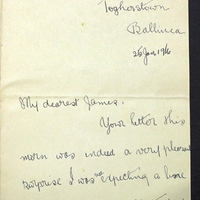 Togherstown
Ballinea
25 Jan. 1916
My dearest James.
Your letter this
morn was indeed a very pleasant
surprise I was not expecting a line